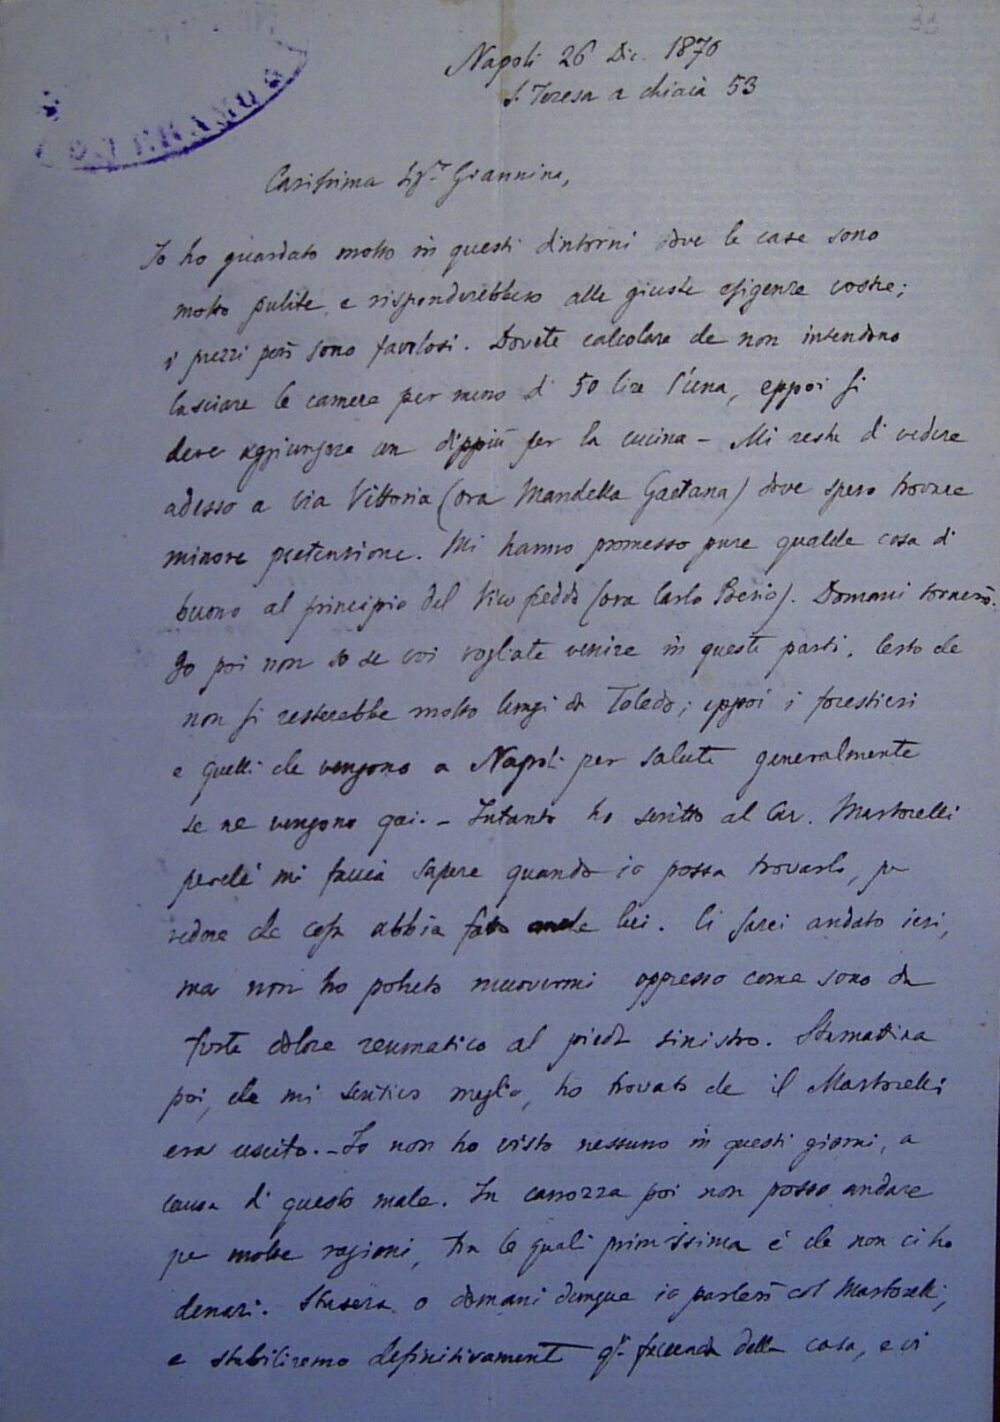 Napoli 26 Dic. 1870
S. Teresa a chiaia 53
Carissima Sigra Giannina,
Io ho guardato molto in questi dintorni dove le case sono
molto pulite, e risponderebbero alle giuste esigenze vostre;
i prezzi però sono favolosi. Dovete calcolare che non intendono
lasciare le camere per meno di 50 lire l'una, eppoi si
deve aggiungere un dippiù per la cucina - Mi resta di vedere
adesso a via Vittoria (ora Mandella Gaetana) dove spero trovare
minore pretenzione. Mi hanno promesso pure qualche cosa di
buono al principio del Vico freddo (ora Carlo Poerio). Domani tornerò.
Io poi non so se voi vogliate venire in queste parti. Certo che
non si resterebbe molto lungi da Toledo; eppoi i forestieri
e quelli che vengono a Napoli per salute generalmente
se ne vengono qui. - Intanto ho scritto al Cav. Martorelli
perché mi faccia sapere quando io possa trovarlo, pe
vedere che cosa abbia fatto anche lui. Ci sarei andato ieri,
ma non ho potuto muovermi oppresso come sono da
forte dolore reumatico al piede sinistro. Stamattina
poi, che mi sentivo meglio, ho trovato che il Martorelli
era uscito. - Io non ho visto nessuno in questi giorni, a
causa di questo male. In carrozza poi non posso andare
pe molte ragioni, tra le quali primissima è che non ci ho
denari. Stasera o domani dunque io parlerò col Martorelli,
e stabiliremo definitivamente qta faccenda della casa, e vi